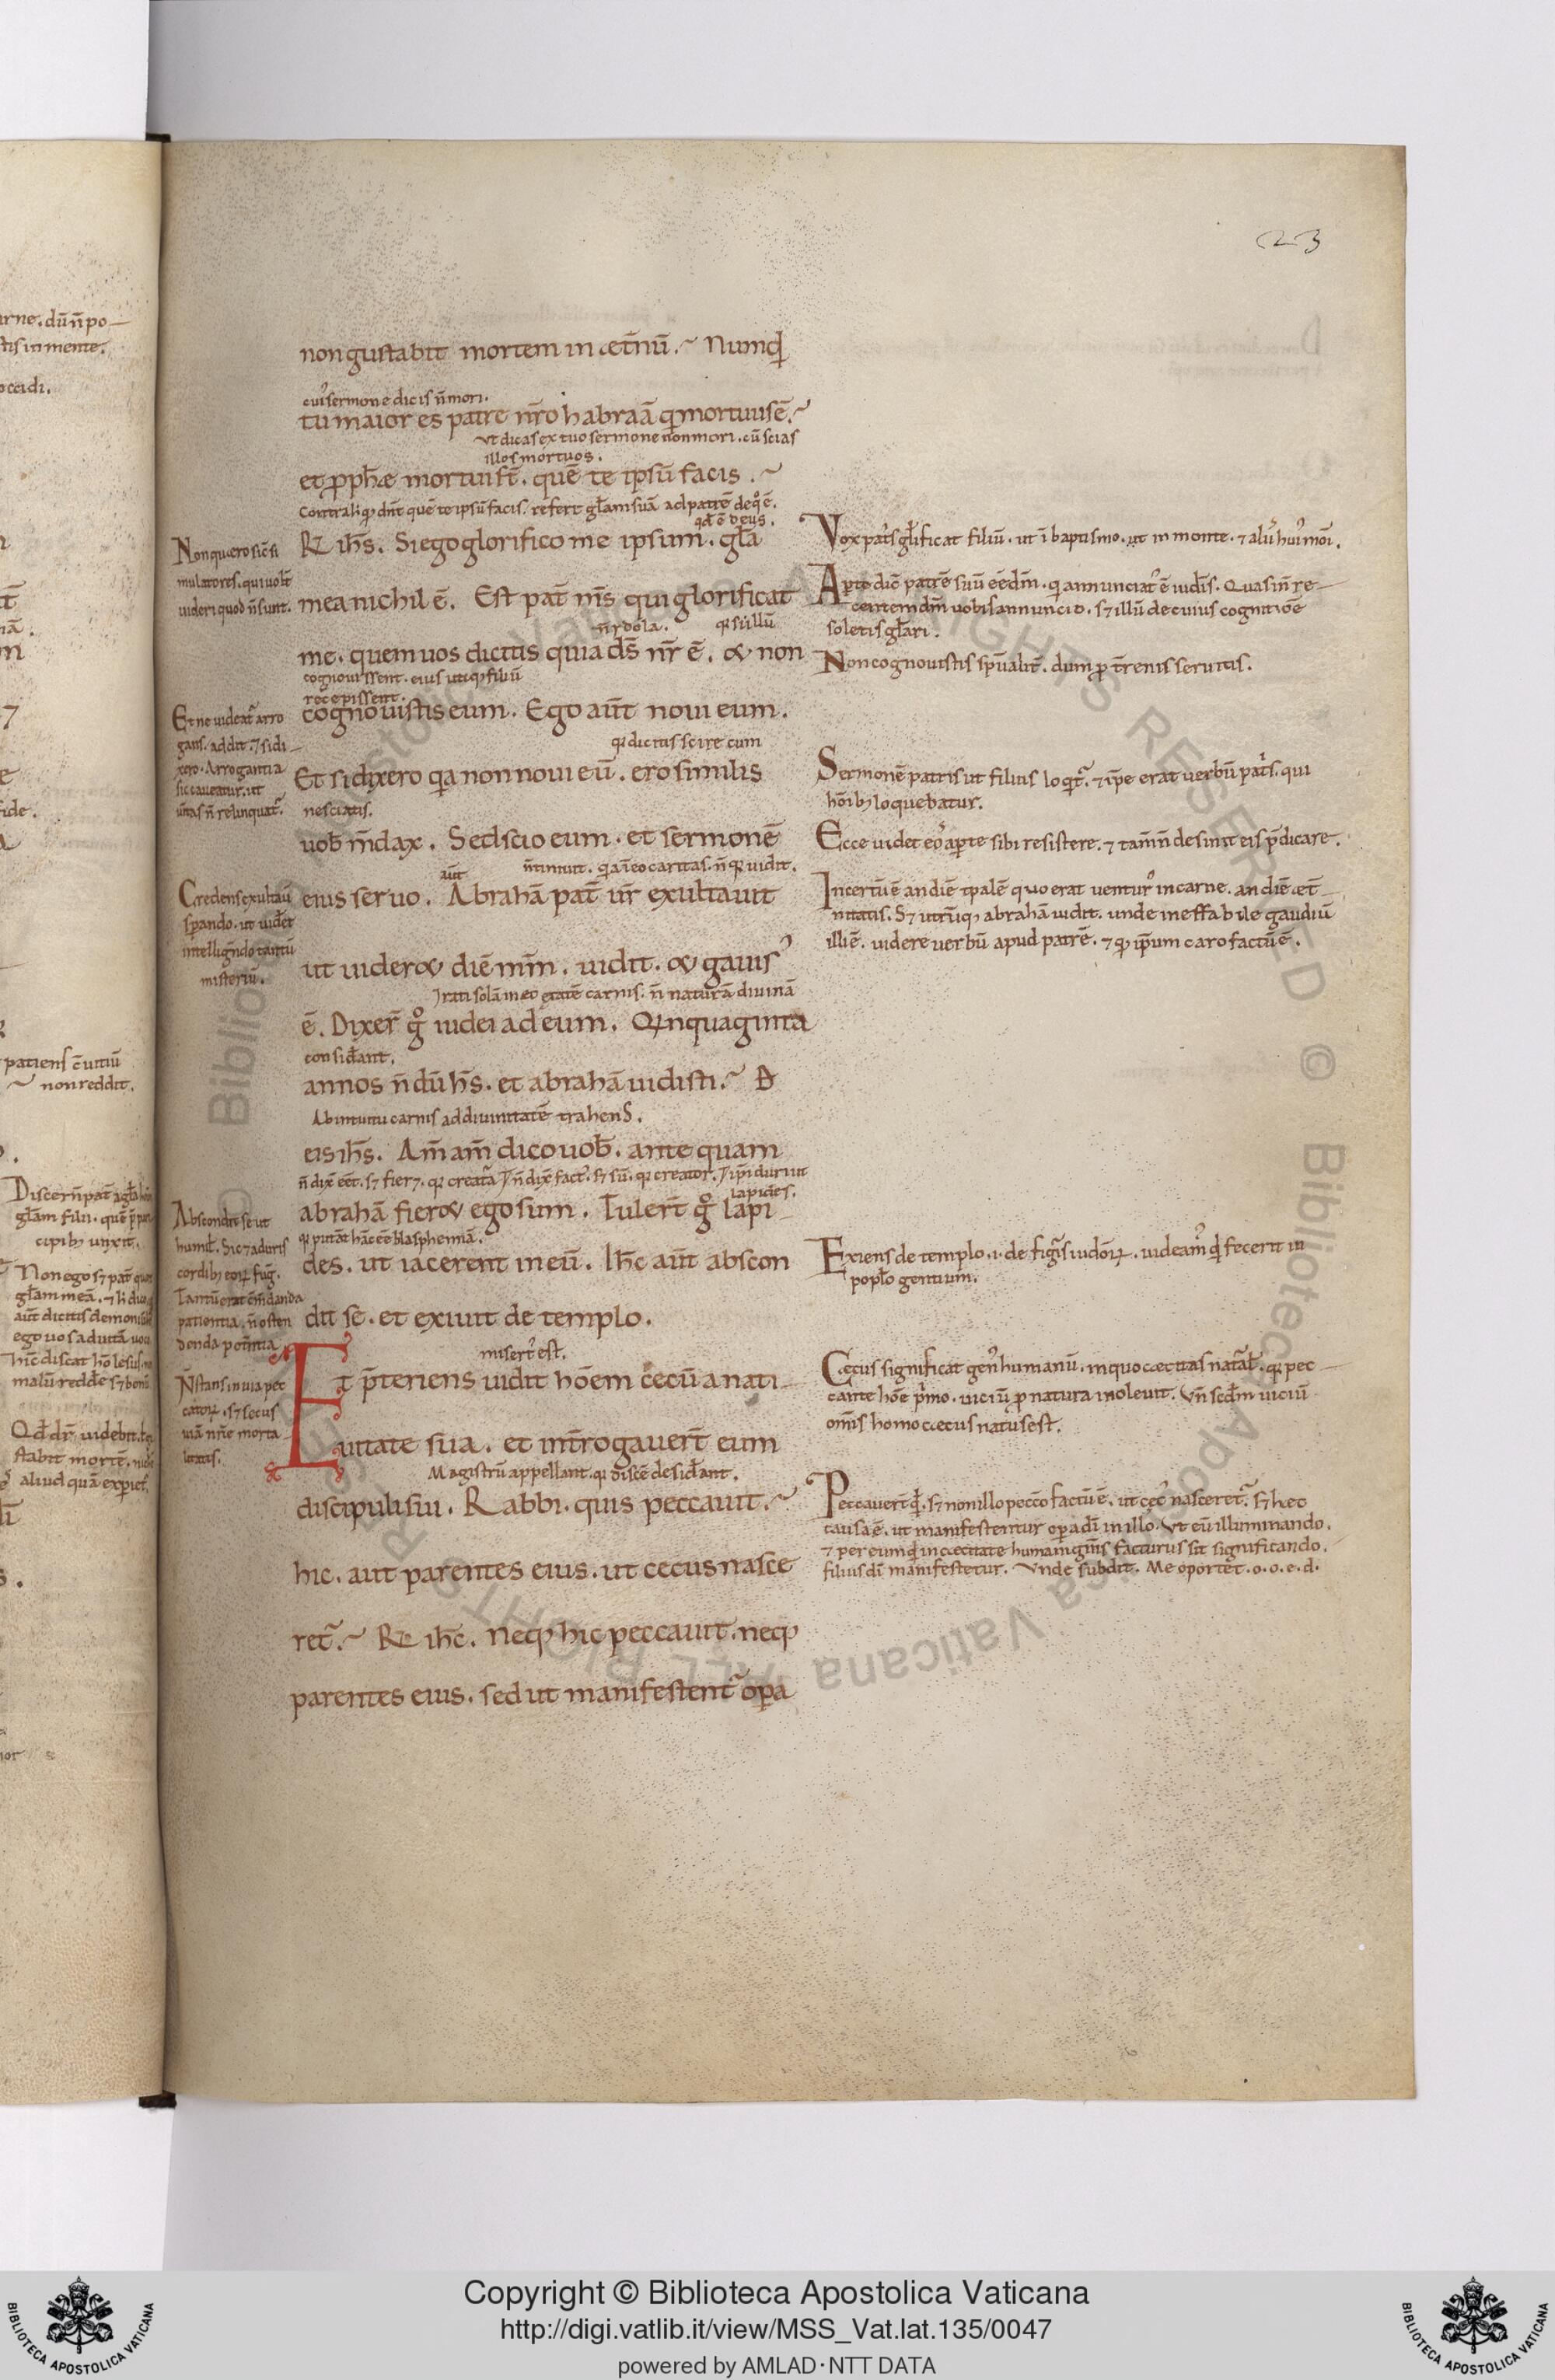 23
non gustabit mortem in æt̄nū. Numq̇d
cui᾽ sermone dicis n̄ mori.
tu maior es patre nr̄o habraā q̇ mortuus ē.
Vt dicas ex tuo sermone non mori. cū scias
illos mortuos.
et ꝓph̄æ mortui st̄. quē te ipsū facis.
Contra liq̇ dn̄t quē te ipsū facis. refert gl̄am suā ad patrē de q̊ ē.
qd̄ ē deus.
R̄ ih̄s. Si ego glorifico me ipsum. gl̄a
mea nichil ē. Est pat̄ m̄s qui glorificat
n̄ ydola.
me. quem uos dicitis quia ds̄ nr̄ ē. & non
cognouissent. eius utiq; filiū
recepissent.
cognouistis eum. Ego aūt noui eum.
qd dicitis scire eum
Et si dixero q̇a non noui eū. ero similis
nesciatis.
uob̄ m̄dax. Sed scio eum. et sermonē
aūt
eius seruo. Abrahā pat̄ ur̄ exultauit
ut uider& diē mm̄. uidit. & gauis᾽
Irati solā in eo etatē carnis. n̄ naturā diuinā
ē. Dixer̄ g̊ iudei ad eum. Qinquaginta
consid̄ant.
annos n̄dū h̄s. et abrahā uidisti. D̄
Ab intuitu carnis ad diuinitatē trahens.
eis ih̄s. Am̄ am̄ dico uob̄. ante quam
n̄ dix̄ ēēt. s; fier&. q; creat̃a. n̄ dix̄ fact᾽. s; sū. q; creator. ip̄i duri ut
lapides.
abrahā fier& ego sum. Tuler̄t g̊ lapi-
q; putāt hāc ēē blasphemiā.
des. ut iacerent in eū. Ih̄c aūt abscon
dit se. et exiuit de templo.
misert᾽ est.
Et p̄teriens uidit hōem cecū a nati-
uitate sua. et int̄rogauer̄t eum
Magistrū appellant. q; discē desid̄ant.
discipuli sui. Rabbi. quis peccauit.
hic. aut parentes eius. ut cecus nasce
ret᷑. R̄ ih̄c. Neq; hic peccauit. neq;
parentes eius. sed ut manifestent᷑ oꝑa
Non quero sic si
mulatores. qui uol̄t
uideri quod n̄ sunt.
Et ne uideat᷑ arro
gans. addit. & si di-
xero. Arrogantia
sic caueatur. ut
ūitas n̄ relinquat᷑.
Credens exultau̅
sp̄ando. ut uid̄et
intelligēndo tantū
misteriū.
Abscondit se ut
humil̄. Sic & a duris
cordib; eoꝝ fug̅.
Tantū erat cōm̄danda
patientia. n̄ osten
denda potn̄tia
N̄ stans in uia pec
catoꝝ. s; secus
uiā nr̄e morta
litatis.
Vox pat̄s gl̄ificat filiū. ut i baptismo. ut in monte. & aliū hui᾽ mōi.
Aꝑte dic̄ patrē suū ēē dm̄. q̇ annunciat᾽ ē iudīs. Quasi n̄ re-
centem dm̄ uobis annuncio. s; illū de cuius cognitiōe
soletis gl̄ari.
Non cognouistis sp̄ualit̄. dum ꝓ t̄renis seruitis.
Sermonē patris ut filius loq̇t᷑. & ip̄e erat uerbū pat̄s. qui
hōib; loquebatur.
Ecce uidet eos aꝑte sibi resistere. & tam̄ n̄ desinit eis p̄dicare.
Incertū ē an diē tp̄alē quo erat uentur᾽ in carne. an diē æt̄-
nitatis. S; utrūq; abrahā uidit. unde ineffabile gaudiū
illi ē. uidere uerbū apud patrē. & q; ip̄sum caro factū ē.
Exiens de templo. i. de fig᷑is iudōꝝ. uideam᾽ q̇d fecerit in
popl̄o gentium.
Cæcus significat gen᾽ humanū. in quo cæcitas nat᷑al̄. q; pec-
cante hōe p̄mo. uiciū ꝓ natura inoleuit. Vn̄ scd̄m uiciū
om̄is homo cæcus natus est.
Peccauer̄t q̇d. s; non illo pecc̄o factū ē. ut cec᾽ nasceret᷑. s; hec
causa ē. ut manifestentur oꝑa di̅ in illo. Vt eū illuminando.
& per eum q̇d in cæcitate humani gn̄is facturus sit significando.
filius di̅ manifestetur. Vnde subdit. Me oportet. o. o. e. d.
Copyright © Biblioteca Apostolica Vaticana
http://digi.vatlib.it/view/MSS_Vat.lat.135/0047
powered by AMLAD·NTT DATA
BIBLIOTECA APOSTOLICA VATICANA
BIBLIOTECA APOSTOLICA VATICANA